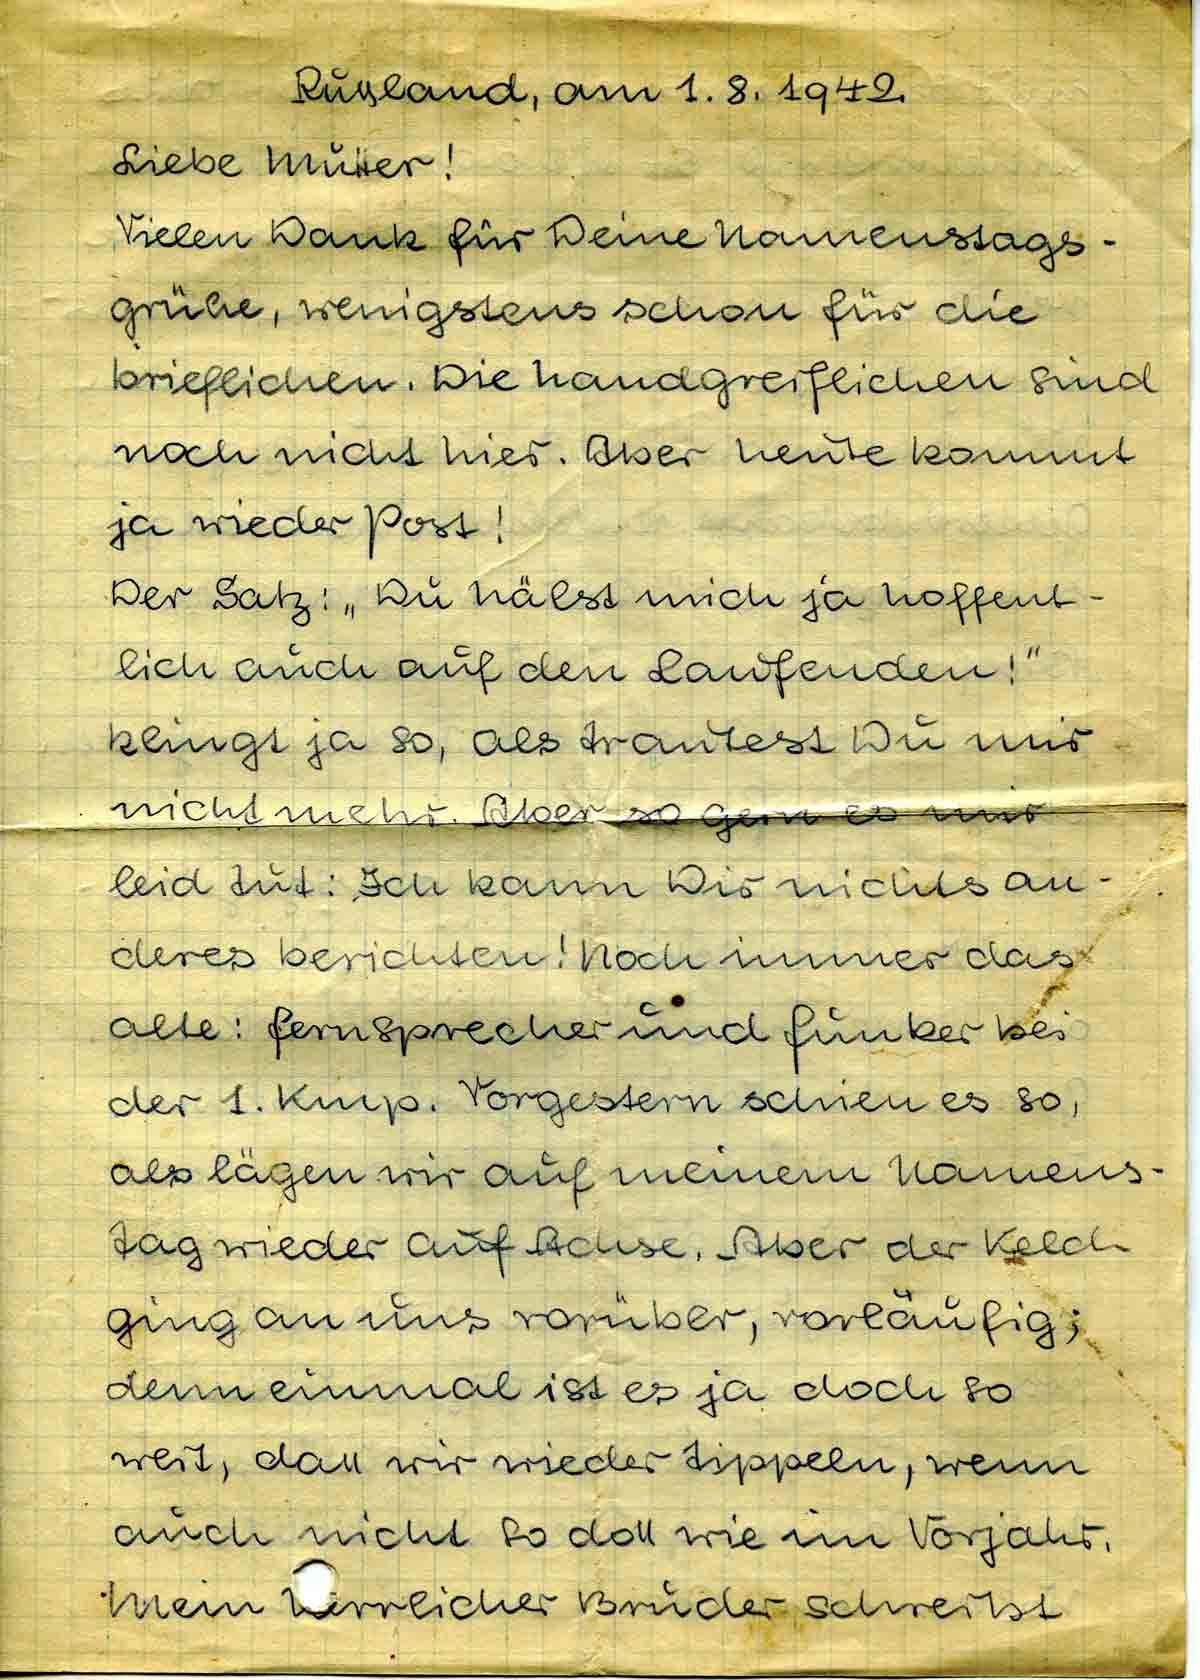 Rußland, am 1. 8. 1942.
Liebe Mutter!
Vielen Dank für Deine Namenstags-
grüße, wenigstens schon für die
brieflichen. Die handgreiflichen sind
noch nicht hier. Aber heute kommt
ja wieder Post!
Der Satz: „Du hälst mich ja hoffent-
lich auch auf den Laufenden!"
klingt ja so, als trautest Du mir
nicht mehr. Aber so gern es mir
leid tut: Ich kann Dir nichts an-
deres berichten! Noch immer das
alte: Fernsprecher und Funker bei
der 1. Kmp. Vorgestern schien es so,
als lägen wir auf meinem Namens-
tag wieder auf Achse. Aber der Kelch
ging an uns vorüber, vorläufig;
denn einmal ist es ja doch so
weit, daß wir wieder tippeln, wenn
auch nicht so doll wie im Vorjahr.
Mein herrlicher Bruder schreibt